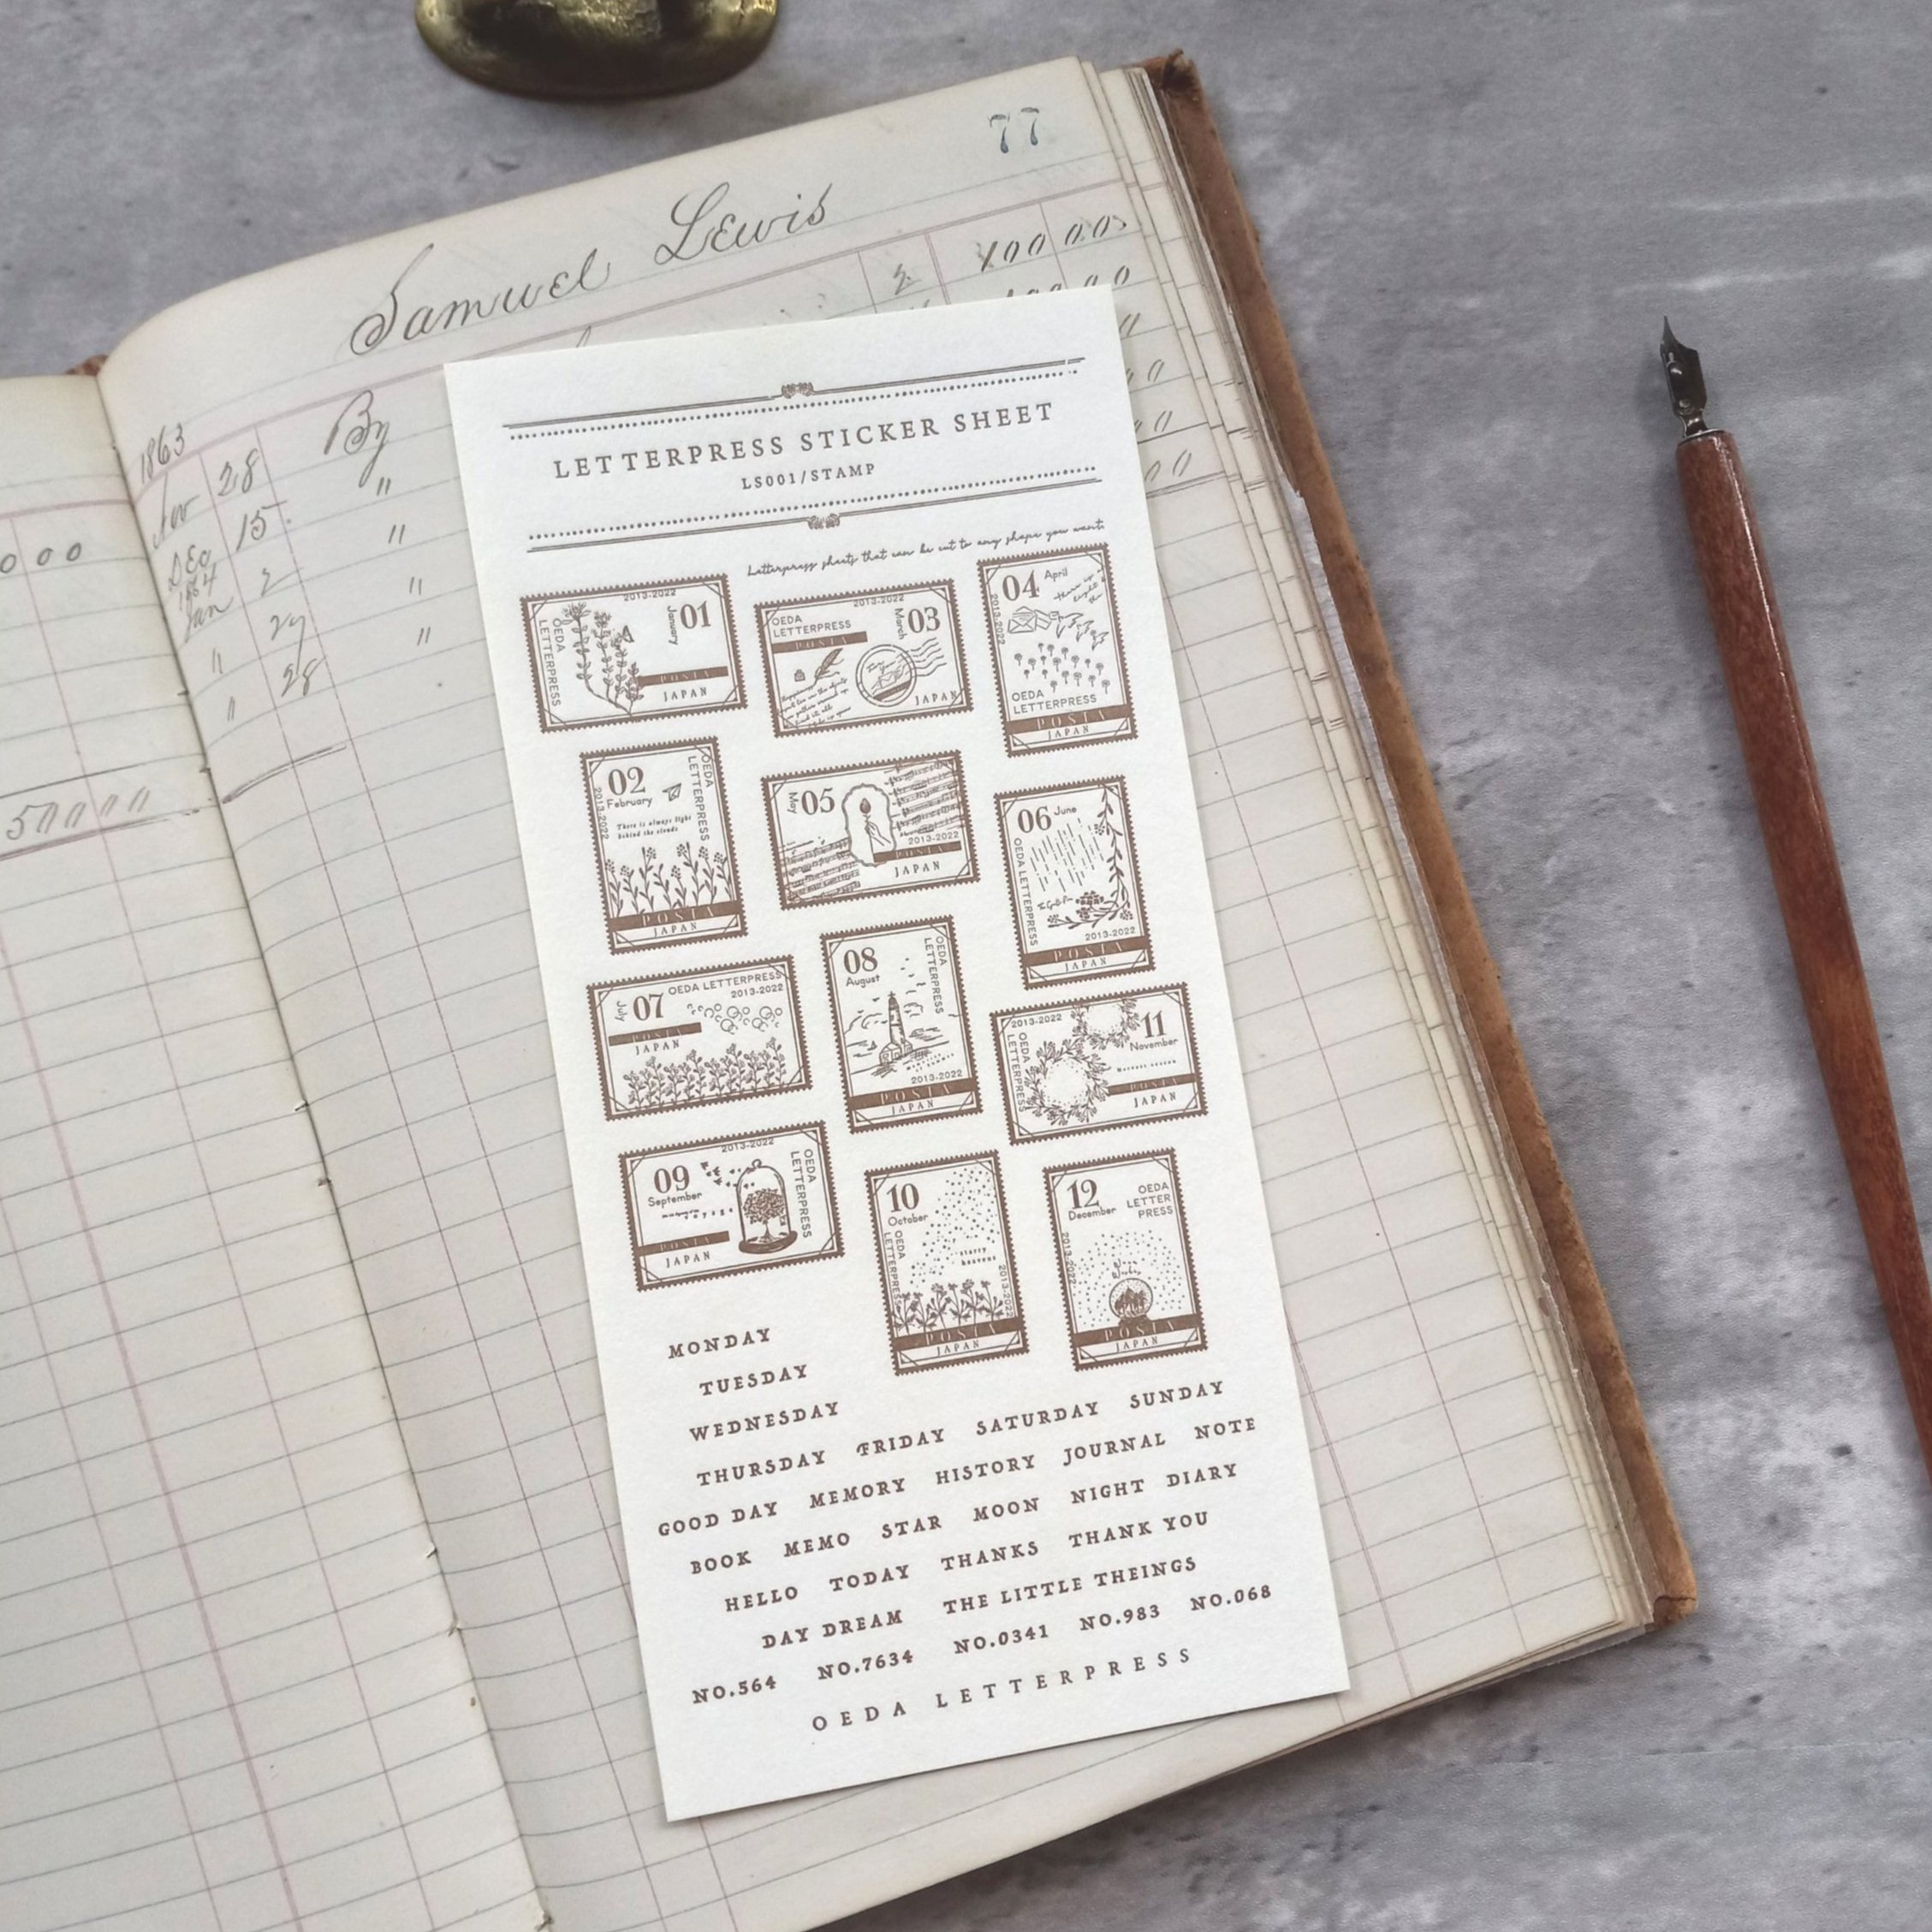 77
Samuel Lewis
2 100 00
1863
Nov 28 By
Dec 15 "
1864
Jan 2 "
" 29 "
" 28 "
0 00
500 00
LETTERPRESS STICKER SHEET
LS001/STAMP
Letterpress sheets that can be cut to any shape you want.
2013-2022
01
January
OEDA
LETTERPRESS
POSTA
JAPAN
2013-2022
OEDA
LETTERPRESS
March
03
POSTA
JAPAN
04
April
2013-2022
OEDA
LETTERPRESS
POSTA
JAPAN
02
February
OEDA
LETTERPRESS
2013-2022
There is always light
behind the clouds
POSTA
JAPAN
May
05
2013-2022
POSTA
JAPAN
06
June
OEDA LETTERPRESS
2013-2022
POSTA
JAPAN
July
07
OEDA LETTERPRESS
2013-2022
POSTA
JAPAN
08
August
OEDA
LETTERPRESS
2013-2022
POSTA
JAPAN
2013-2022
11
November
OEDA
LETTERPRESS
POSTA
JAPAN
2013-2022
09
September
OEDA
LETTERPRESS
POSTA
JAPAN
10
October
OEDA
LETTERPRESS
starry
heavens
2013-2022
POSTA
JAPAN
12
December
OEDA
LETTER
PRESS
2013-2022
POSTA
JAPAN
MONDAY
TUESDAY
WEDNESDAY
THURSDAY FRIDAY SATURDAY SUNDAY
GOOD DAY MEMORY HISTORY JOURNAL NOTE
BOOK MEMO STAR MOON NIGHT DIARY
HELLO TODAY THANKS THANK YOU
DAY DREAM THE LITTLE THEINGS
NO.564 NO.7634 NO.0341 NO.983 NO.068
OEDA LETTERPRESS